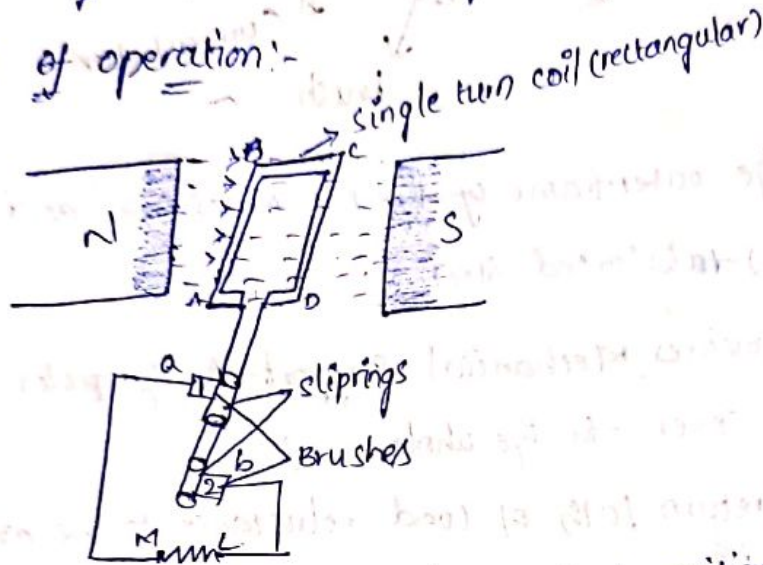 of operation:-
single turn coil (rectangular)
B
C
N
S
A
D
a
sliprings
b
Brushes
2
M
L